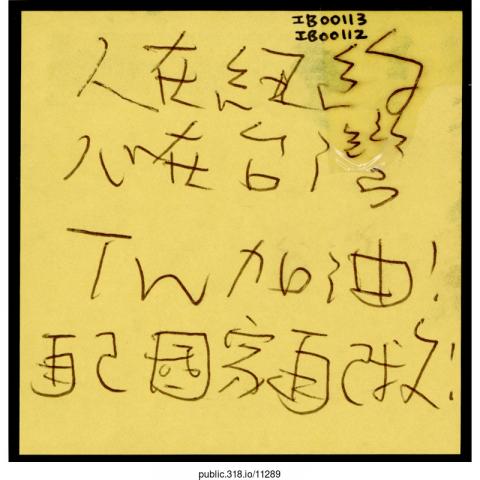 IB00113
IB00112
人在紐約
心在台灣
TW 加油!
自己國家自己救!
public.318.io/11289